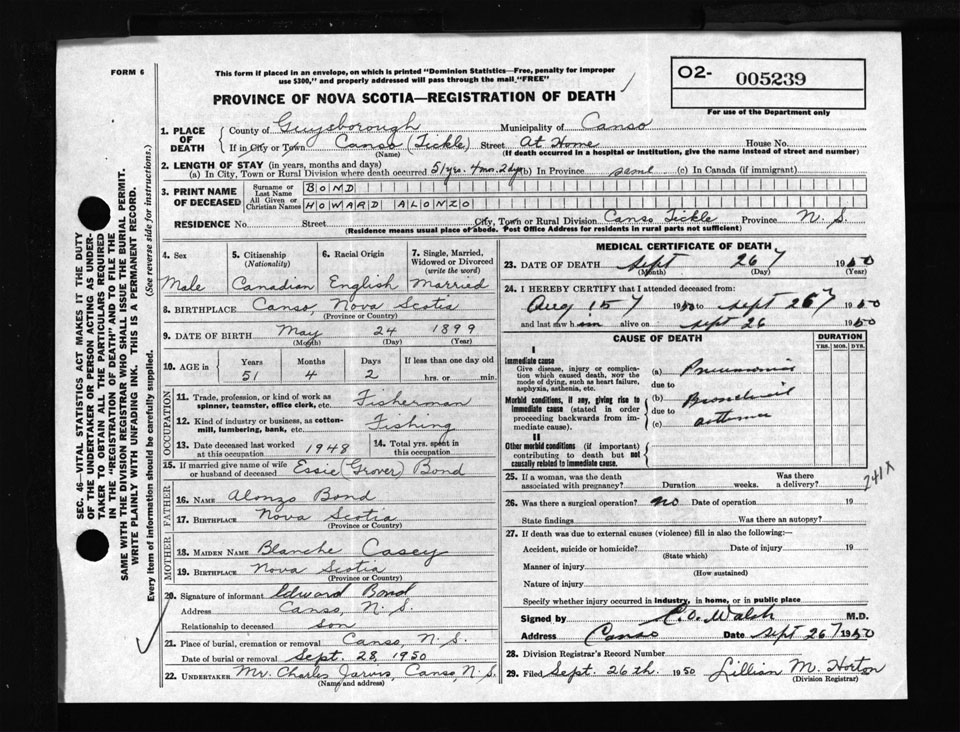 FORM 6
This form if placed in an envelope, on which is printed "Dominion Statistics—Free, penalty for improper
use $300," and properly addressed will pass through the mail "FREE"
O2- 005239
For use of the Department only
PROVINCE OF NOVA SCOTIA—REGISTRATION OF DEATH
1. PLACE OF DEATH
County of Guysborough Municipality of Canso
If in City or Town Canso (Tickle) Street At Home House No.
(Name) (If death occurred in a hospital or institution, give the name instead of street and number)
2. LENGTH OF STAY (in years, months and days)
(a) In City, Town or Rural Division where death occurred 51 yrs. 4 mos. 2 dys (b) In Province same (c) In Canada (if immigrant)
3. PRINT NAME OF DECEASED
Surname or Last Name BOND
All Given or Christian Names HOWARD ALONZO
RESIDENCE No. Street City, Town or Rural Division Canso Tickle Province N. S.
(Residence means usual place of abode. Post Office Address for residents in rural parts not sufficient)
4. Sex 5. Citizenship (Nationality) 6. Racial Origin 7. Single, Married, Widowed or Divorced (write the word)
Male Canadian English Married
8. BIRTHPLACE Canso, Nova Scotia
(Province or Country)
9. DATE OF BIRTH May 24 1899
(Month) (Day) (Year)
10. AGE in Years Months Days If less than one day old
51 4 2 hrs. or min.
OCCUPATION
11. Trade, profession, or kind of work as spinner, teamster, office clerk, etc. Fisherman
12. Kind of industry or business, as cotton-mill, lumbering, bank, etc. Fishing
13. Date deceased last worked at this occupation 1948 14. Total yrs. spent in this occupation
15. If married give name of wife or husband of deceased Essie (Grover) Bond
FATHER
16. NAME Alonzo Bond
17. BIRTHPLACE Nova Scotia
(Province or Country)
MOTHER
18. MAIDEN NAME Blanche Casey
19. BIRTHPLACE Nova Scotia
(Province or Country)
20. Signature of informant Edward Bond
Address Canso, N. S.
Relationship to deceased son
21. Place of burial, cremation or removal Canso, N. S.
Date of burial or removal Sept. 28, 1950
22. UNDERTAKER Mr. Charles Jarvis, Canso, N. S.
(Name and address)
MEDICAL CERTIFICATE OF DEATH
23. DATE OF DEATH Sept 26 1950
(Month) (Day) (Year)
24. I HEREBY CERTIFY that I attended deceased from:
Aug 15 1950 to Sept 26 1950
and last saw him alive on Sept 26 1950
CAUSE OF DEATH DURATION
YRS. MOS. DYS.
I
Immediate cause
Give disease, injury or complication which caused death, NOT the mode of dying, such as heart failure, asphyxia, asthenia, etc.
(a) Pneumonia
due to
Morbid conditions, if any, giving rise to immediate cause (stated in order proceeding backwards from immediate cause).
(b) Bronchial
due to
(c) asthma
II
Other morbid conditions (if important) contributing to death but not causally related to immediate cause.
25. If a woman, was the death associated with pregnancy? Duration weeks. Was there a delivery?
241X
26. Was there a surgical operation? no Date of operation 19
State findings Was there an autopsy?
27. If death was due to external causes (violence) fill in also the following:—
Accident, suicide or homicide? Date of injury 19
(State which)
Manner of injury
(How sustained)
Nature of injury
Specify whether injury occurred in industry, in home, or in public place
Signed by C. O. Walsh M.D.
Address Canso Date Sept 26 1950
28. Division Registrar's Record Number
29. Filed Sept. 26th. 1950 Lillian M. Horton
(Division Registrar)
SEC. 46—VITAL STATISTICS ACT MAKES IT THE DUTY
OF THE UNDERTAKER OR PERSON ACTING AS UNDER-
TAKER TO OBTAIN ALL THE PARTICULARS REQUIRED
IN THE "REGISTRATION OF DEATH" AND TO FILE THE
SAME WITH THE DIVISION REGISTRAR WHO SHALL ISSUE THE BURIAL PERMIT.
WRITE PLAINLY WITH UNFADING INK. THIS IS A PERMANENT RECORD.
Every item of information should be carefully supplied. (See reverse side for instructions.)